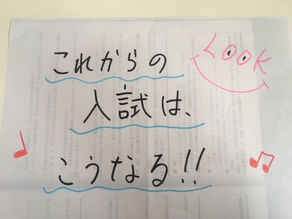 LOOK
これからの
入試は、
こうなる!!